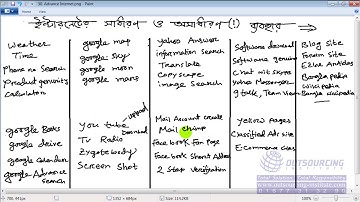 30. Advance Internet.png - Paint
ইন্টারনেটের সাধারণ ও অসাধারণ (!) ব্যবহার
Weather
Time
Phone no Search
Product genuinity
Calculation
google Books
google drive
google calendar
google Advance search
google map
google sky
google moon
google mars
You tube
Tv Radio
Zygotebody
Screen Shot
Yahoo Answer
information Search
Translate
Copy scape
image Search
Mail Account create
Mail chimp
Facebook Fan page
Facebook Short Address
2 Step Verification
Software download
Software genuine
Chat with skype
Yahoo Messenger
g talk, Team Viewer
Yellow Pages
Classified Ads site
E-commerce site
Blog site
Forum site
Ezine Articles
Banglapedia
Wikipedia
Bangla wikipedia
OUTSOURCING